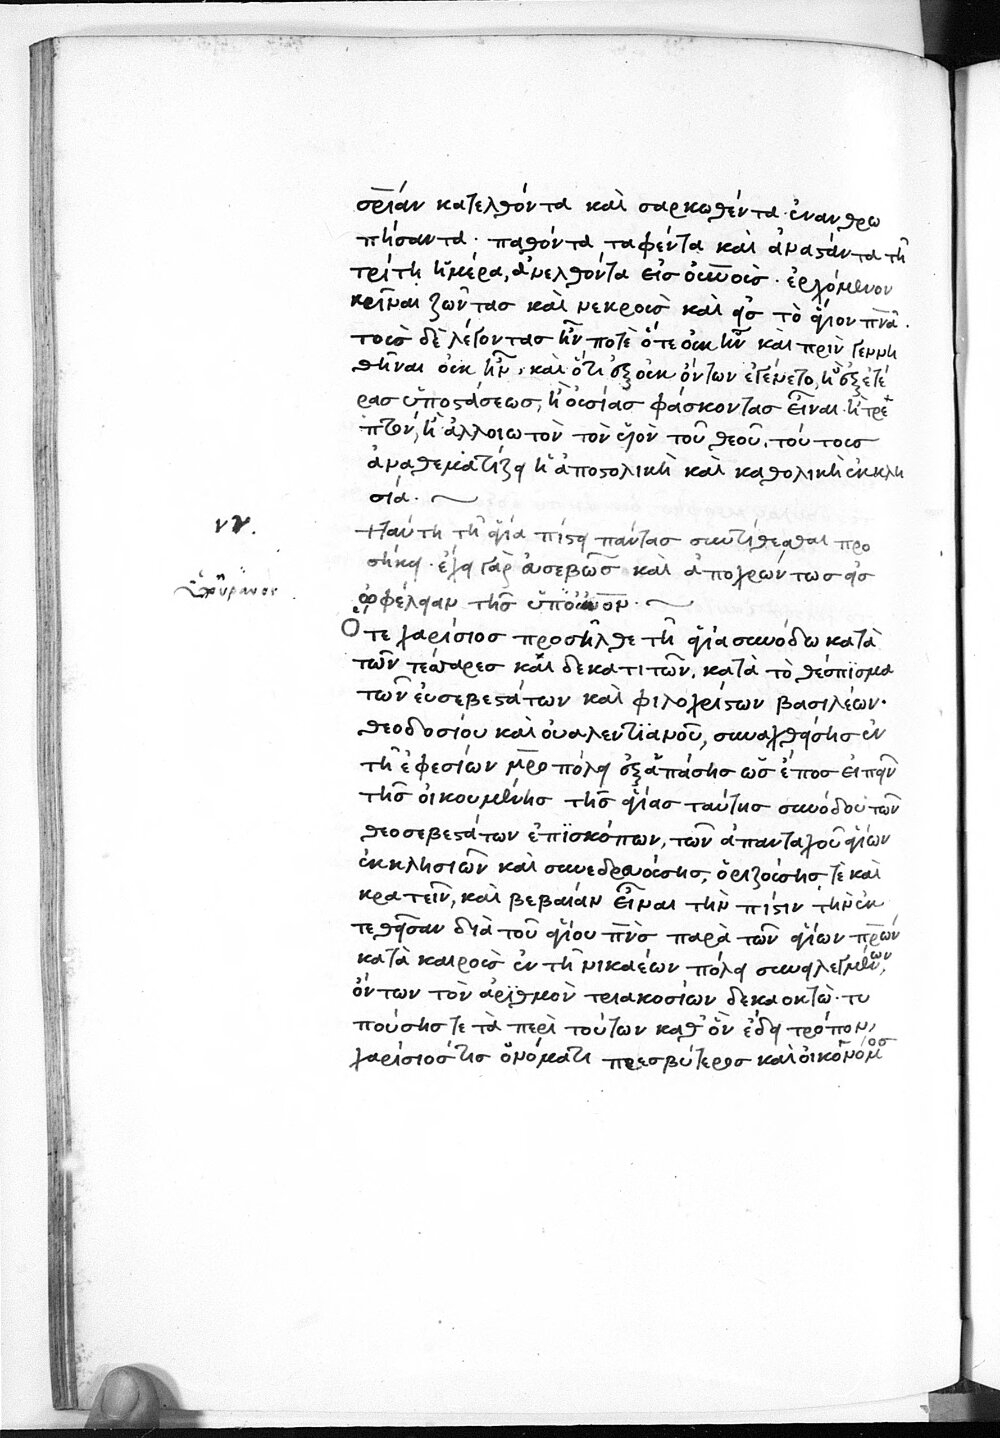 σ̅ρ̅ιάν κατελθόντα καὶ σαρκωθέντα· ἐνανθρω
πήσαντα· παθόντα ταφέντα καὶ ἀναστάντα τῆ
τρίτη ἡμέρα, ἀνελθόντα εἰς οὐ̅νοὺς· ἐρχόμενον
κρῖναι ζῶντας καὶ νεκροὺς καὶ εἰς τὸ ἅγιον π̅ν̅α̅.
τοὺς δὲ λέγοντας ἦν ποτὲ ὅτε οὐκ ἦν καὶ πρὶν γεννη
θῆναι οὐκ ἦν, καὶ ὅτι ἐξ οὐκ ὄντων ἐγένετο, ἢ ἐξ ἑτέ
ρας ὑποστάσεως, ἢ οὐσίας φάσκοντας εἶναι· ἢ τρε
πτὸν, ἢ ἀλλοιωτὸν τὸν υἱὸν τοῦ θεοῦ, τούτους
ἀναθεματίζει ἡ ἀποστολικὴ καὶ καθολικὴ ἐκκλη
σία·
Ταύτη τῆ ἁγία πίστει πάντας συντίθεσθαι προ
σήκει· ἔχει γὰρ εὐσεβῶς καὶ ἀποχρώντως εἰς
ὠφέλειαν τῆς ὑπ' οὐ̅νὸν·
Ὅτε χαρίσιος προσῆλθε τῆ ἁγία συνόδω κατὰ
τῶν τεσσαρες καὶ δεκατιτῶν, κατὰ τὸ θέσπϊσμα
τῶν εὐσεβεστάτων καὶ φιλοχρίστων βασιλέων·
θεοδοσίου καὶ οὐαλεντϊανοῦ, συναχθείσης ἐν
τῆ ἐφεσίων μ̅ρ̅οπόλει ἐξ ἁπάσης ὡς ἔπος εἰπεῖν
τῆς οἰκουμένης τῆς ἁγίας ταύτης συνόδου τῶν
θεοσεβεστάτων ἐπϊσκόπων, τῶν ἁπανταχοῦ ἁγίων
ἐκκλησιῶν καὶ συνεδρευούσης, ὁριζούσης τὲ καὶ
κρατεῖν, καὶ βεβαίαν εἶναι τὴν πίστιν τὴν ἐκ
τεθεῖσαν διὰ τοῦ ἁγίου π̅ν̅ς παρὰ τῶν ἁγίων π̅ρ̅ων
κατὰ καιροὺς ἐν τῆ νικαέων πόλει συνειλεγμένων,
ὄντων τὸν ἀρϊθμὸν τριακοσίων δεκαοκτὼ· τυ
πούσης τε τὰ περὶ τούτων καθ' ὃν ἔδει τρόπον,
χαρίσιος τὶς ὀνόματι πρεσβύτερος καὶ οἰκονόμος